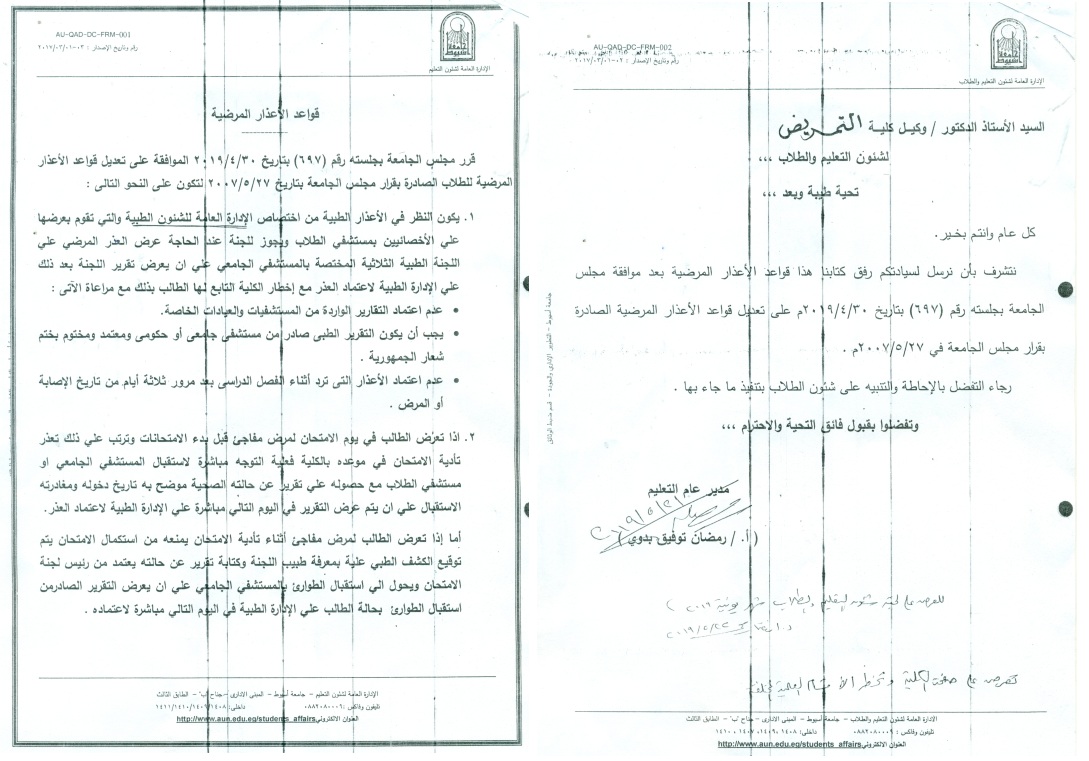 AU-QAD-DC-FRM-002
رقم وتاريخ الإصدار : ٠٢-٢٠١٧/٠٣/٠١
الإدارة العامة لشئون التعليم والطلاب
السيد الأستاذ الدكتور / وكيل كلية التمريض
لشئون التعليم والطلاب ،،،
تحية طيبة وبعد ،،،
كل عام وانتم بخير .
نتشرف بأن نرسل لسيادتكم رفق كتابنا هذا قواعد الأعذار المرضية بعد موافقة مجلس
الجامعة بجلسته رقم (٦٩٧) بتاريخ ٢٠١٩/٤/٣٠م على تعديل قواعد الأعذار المرضية الصادرة
بقرار مجلس الجامعة في ٢٠٠٧/٥/٢٧م .
رجاء التفضل بالإحاطة والتنبيه على شئون الطلاب بتنفيذ ما جاء بها .
وتفضلوا بقبول فائق التحية والاحترام ،،،
مدير عام التعليم
(أ. / رمضان توفيق بدوي)
للعرض على لجنة شئون التعليم والطلاب شهر يونية ٢٠١٩
الإدارة العامة لشئون التعليم والطلاب – جامعة أسيوط – المبنى الادارى – جناح "ب" – الطابق الثالث
تليفون وفاكس : ٠٨٨٢٠٨٠٠٠٩ داخلى: ١٤٠٨ ،١٤٠٩ ،١٤٠٧ ،١٤١٠
العنوان الالكتروني http://www.aun.edu.eg/students_affairs
AU-QAD-DC-FRM-001
رقم وتاريخ الإصدار : ٠٣-٢٠١٧/٠٣/٠١
الإدارة العامة لشئون التعليم
قواعد الأعذار المرضية
قرر مجلس الجامعة بجلسته رقم (٦٩٧) بتاريخ ٢٠١٩/٤/٣٠ الموافقة على تعديل قواعد الأعذار
المرضية للطلاب الصادرة بقرار مجلس الجامعة بتاريخ ٢٠٠٧/٥/٢٧ لتكون على النحو التالى :
١. يكون النظر في الأعذار الطبية من اختصاص الإدارة العامة للشئون الطبية والتي تقوم بعرضها
علي الأخصائيين بمستشفي الطلاب ويجوز للجنة عند الحاجة عرض العذر المرضي علي
اللجنة الطبية الثلاثية المختصة بالمستشفي الجامعي علي ان يعرض تقرير اللجنة بعد ذلك
علي الإدارة الطبية لاعتماد العذر مع إخطار الكلية التابع لها الطالب بذلك مع مراعاة الآتى :
• عدم اعتماد التقارير الواردة من المستشفيات والعيادات الخاصة.
• يجب أن يكون التقرير الطبى صادر من مستشفى جامعى أو حكومى ومعتمد ومختوم بختم
شعار الجمهورية .
• عدم اعتماد الأعذار التى ترد أثناء الفصل الدراسى بعد مرور ثلاثة أيام من تاريخ الإصابة
أو المرض .
٢. اذا تعرض الطالب في يوم الامتحان لمرض مفاجئ قبل بدء الامتحانات وترتب علي ذلك تعذر
تأدية الامتحان في موعده بالكلية فعلية التوجه مباشرة لاستقبال المستشفي الجامعي او
مستشفي الطلاب مع حصوله علي تقرير عن حالته الصحية موضح به تاريخ دخوله ومغادرته
الاستقبال علي ان يتم عرض التقرير في اليوم التالي مباشرة علي الإدارة الطبية لاعتماد العذر.
أما إذا تعرض الطالب لمرض مفاجئ أثناء تأدية الامتحان يمنعه من استكمال الامتحان يتم
توقيع الكشف الطبي علية بمعرفة طبيب اللجنة وكتابة تقرير عن حالته يعتمد من رئيس لجنة
الامتحان ويحول الي استقبال الطوارئ بالمستشفي الجامعي علي ان يعرض التقرير الصادرمن
استقبال الطوارئ بحالة الطالب علي الإدارة الطبية في اليوم التالي مباشرة لاعتماده .
الإدارة العامة لشئون التعليم – جامعة أسيوط – المبنى الادارى – جناح "ب" – الطابق الثالث
تليفون وفاكس : ٠٨٨٢٠٨٠٠٠٩ داخلى: ١٤١١/١٤١٠/١٤٠٦/١٤٠٨
العنوان الالكتروني http://www.aun.edu.eg/students_affairs